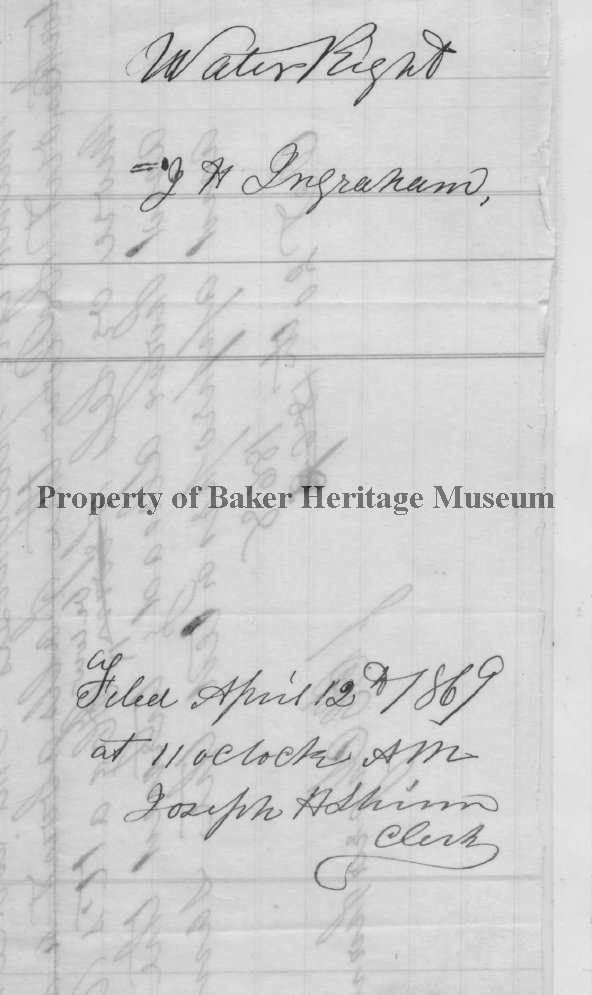 Water Right
J H Ingraham,
Property of Baker Heritage Museum
Filed April 12th 1869
at 11 oclock AM
Joseph H Shinn
Clerk